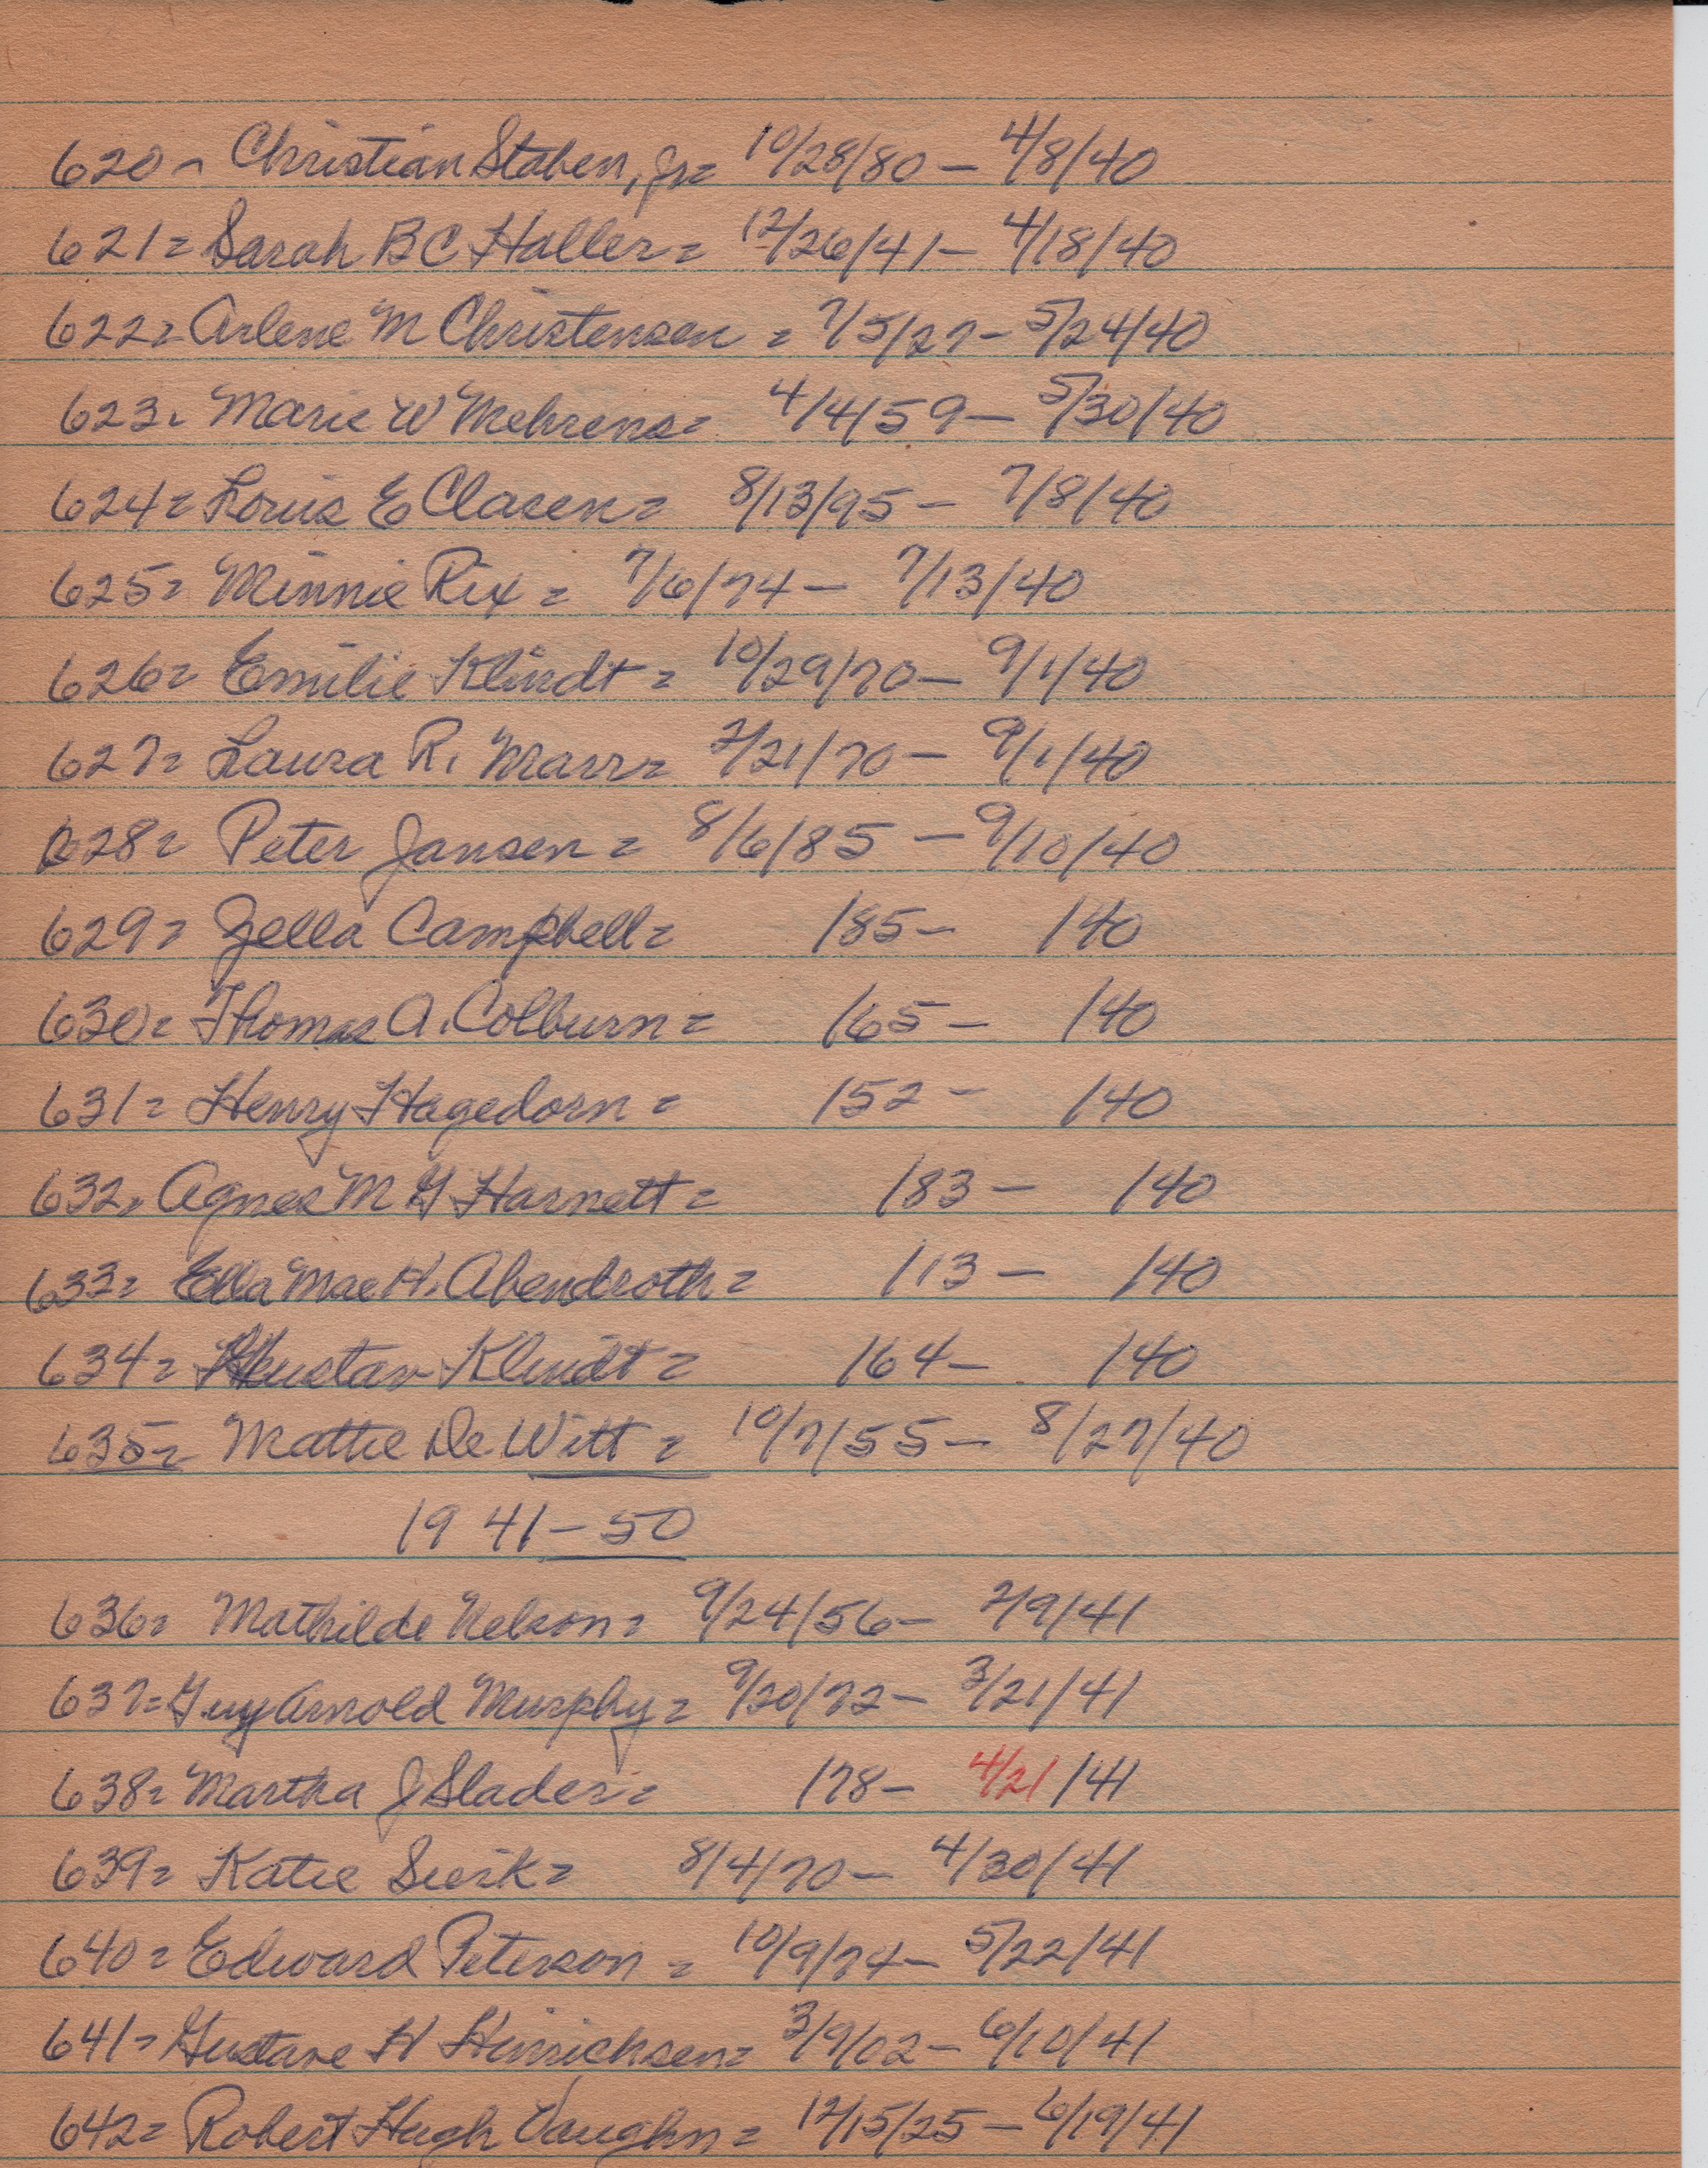 620 - Christian Staben, Jr = 10/28/80 - 4/8/40
621 = Sarah B C Haller = 12/26/41 - 4/18/40
622 = Arlene M Christensen = 7/5/27 - 5/24/40
623 = Marie W Mehrens = 4/4/59 - 5/30/40
624 = Louis E Clasen = 8/13/95 - 7/8/40
625 = Minnie Rix = 7/6/74 - 7/13/40
626 = Emilie Klindt = 10/29/70 - 9/1/40
627 = Laura R. Marr = 2/21/70 - 9/1/40
628 = Peter Jansen = 8/6/85 - 9/10/40
629 = Zella Campbell = /85 - /40
630 = Thomas A. Colburn = /65 - /40
631 = Henry Hagedorn = /52 - /40
632 = Agnes M G Harnett = /83 - /40
633 = Ella Mae H. Abendroth = /13 - /40
634 = Gustav Klindt = /64 - /40
635 = Mattie De Witt = 10/7/55 - 8/27/40
1941 - 50
636 = Mathilde Nelson = 9/24/56 - 2/9/41
637 = Guy Arnold Murphy = 9/20/72 - 3/21/41
638 = Martha J Slader = /78 - 4/21/41
639 = Katie Sierk = 8/4/70 - 4/30/41
640 = Edward Peterson = 10/9/74 - 5/22/41
641 = Gustave H Hinrichsen = 3/9/02 - 6/10/41
642 = Robert Hugh Vaughn = 12/15/25 - 6/19/41